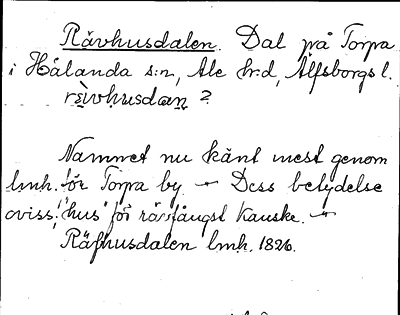 Rävhusdalen. Dal på Torpa
i Hålanda s:n, Ale h:d, Älfsborgs l.
rä̀vhu̇sdan ?
Namnet nu känt mest genom
lmh. för Torpa by. – Dess betydelse
oviss; "hus" för rävfångst kanske. –
Räfhusdalen lmh. 1826.